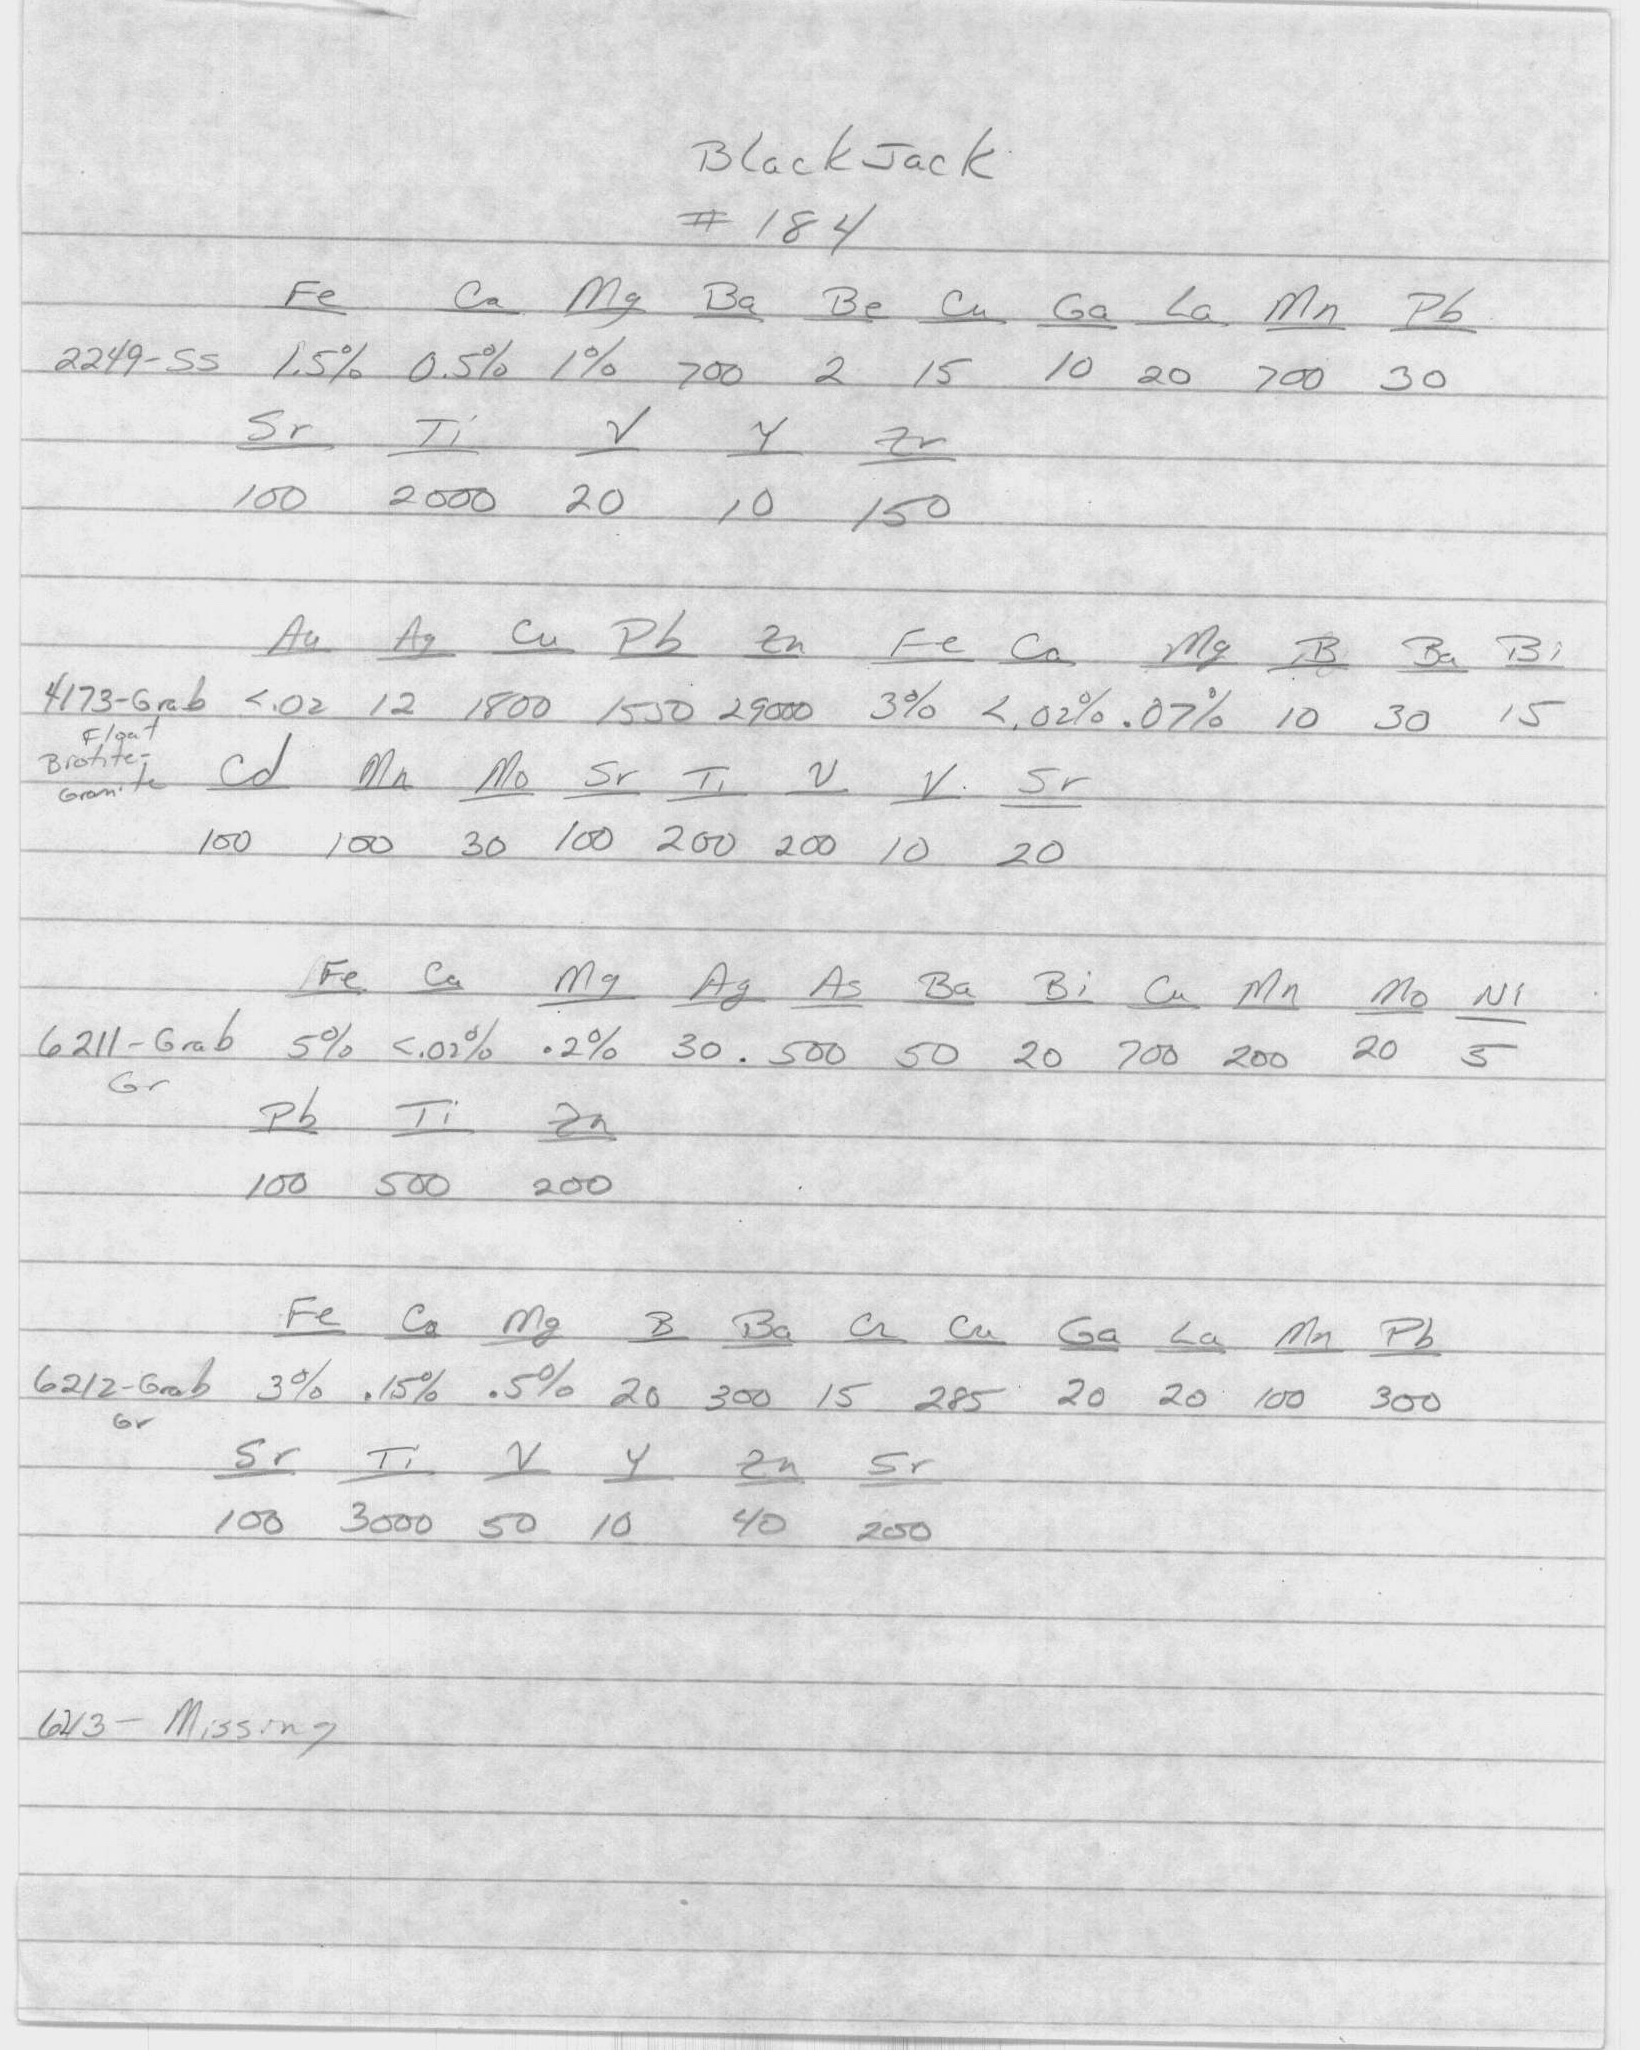 BlackJack
# 184
Fe Ca Mg Ba Be Cu Ga La Mn Pb
2249-SS 1.5% 0.5% 1% 700 2 15 10 20 700 30
Sr Ti V Y Zr
100 2000 20 10 150
Au Ag Cu Pb Zn Fe Ca Mg B Ba Bi
4173-Grab <.02 12 1800 1550 29000 3% <.02% .07% 10 30 15
Float
Biotite-
Granite
Cd Mn Mo Sr Ti V V Sr
100 100 30 100 200 200 10 20
Fe Ca Mg Ag As Ba Bi Cu Mn Mo Ni
6211-Grab 5% <.02% .2% 30 500 50 20 700 200 20 5
Gr
Pb Ti Zn
100 500 200
Fe Ca Mg B Ba Cr Cu Ga La Mn Pb
6212-Grab 3% .15% .5% 20 300 15 285 20 20 100 300
Gr
Sr Ti V Y Zn Sr
100 3000 50 10 40 200
6213- Missing